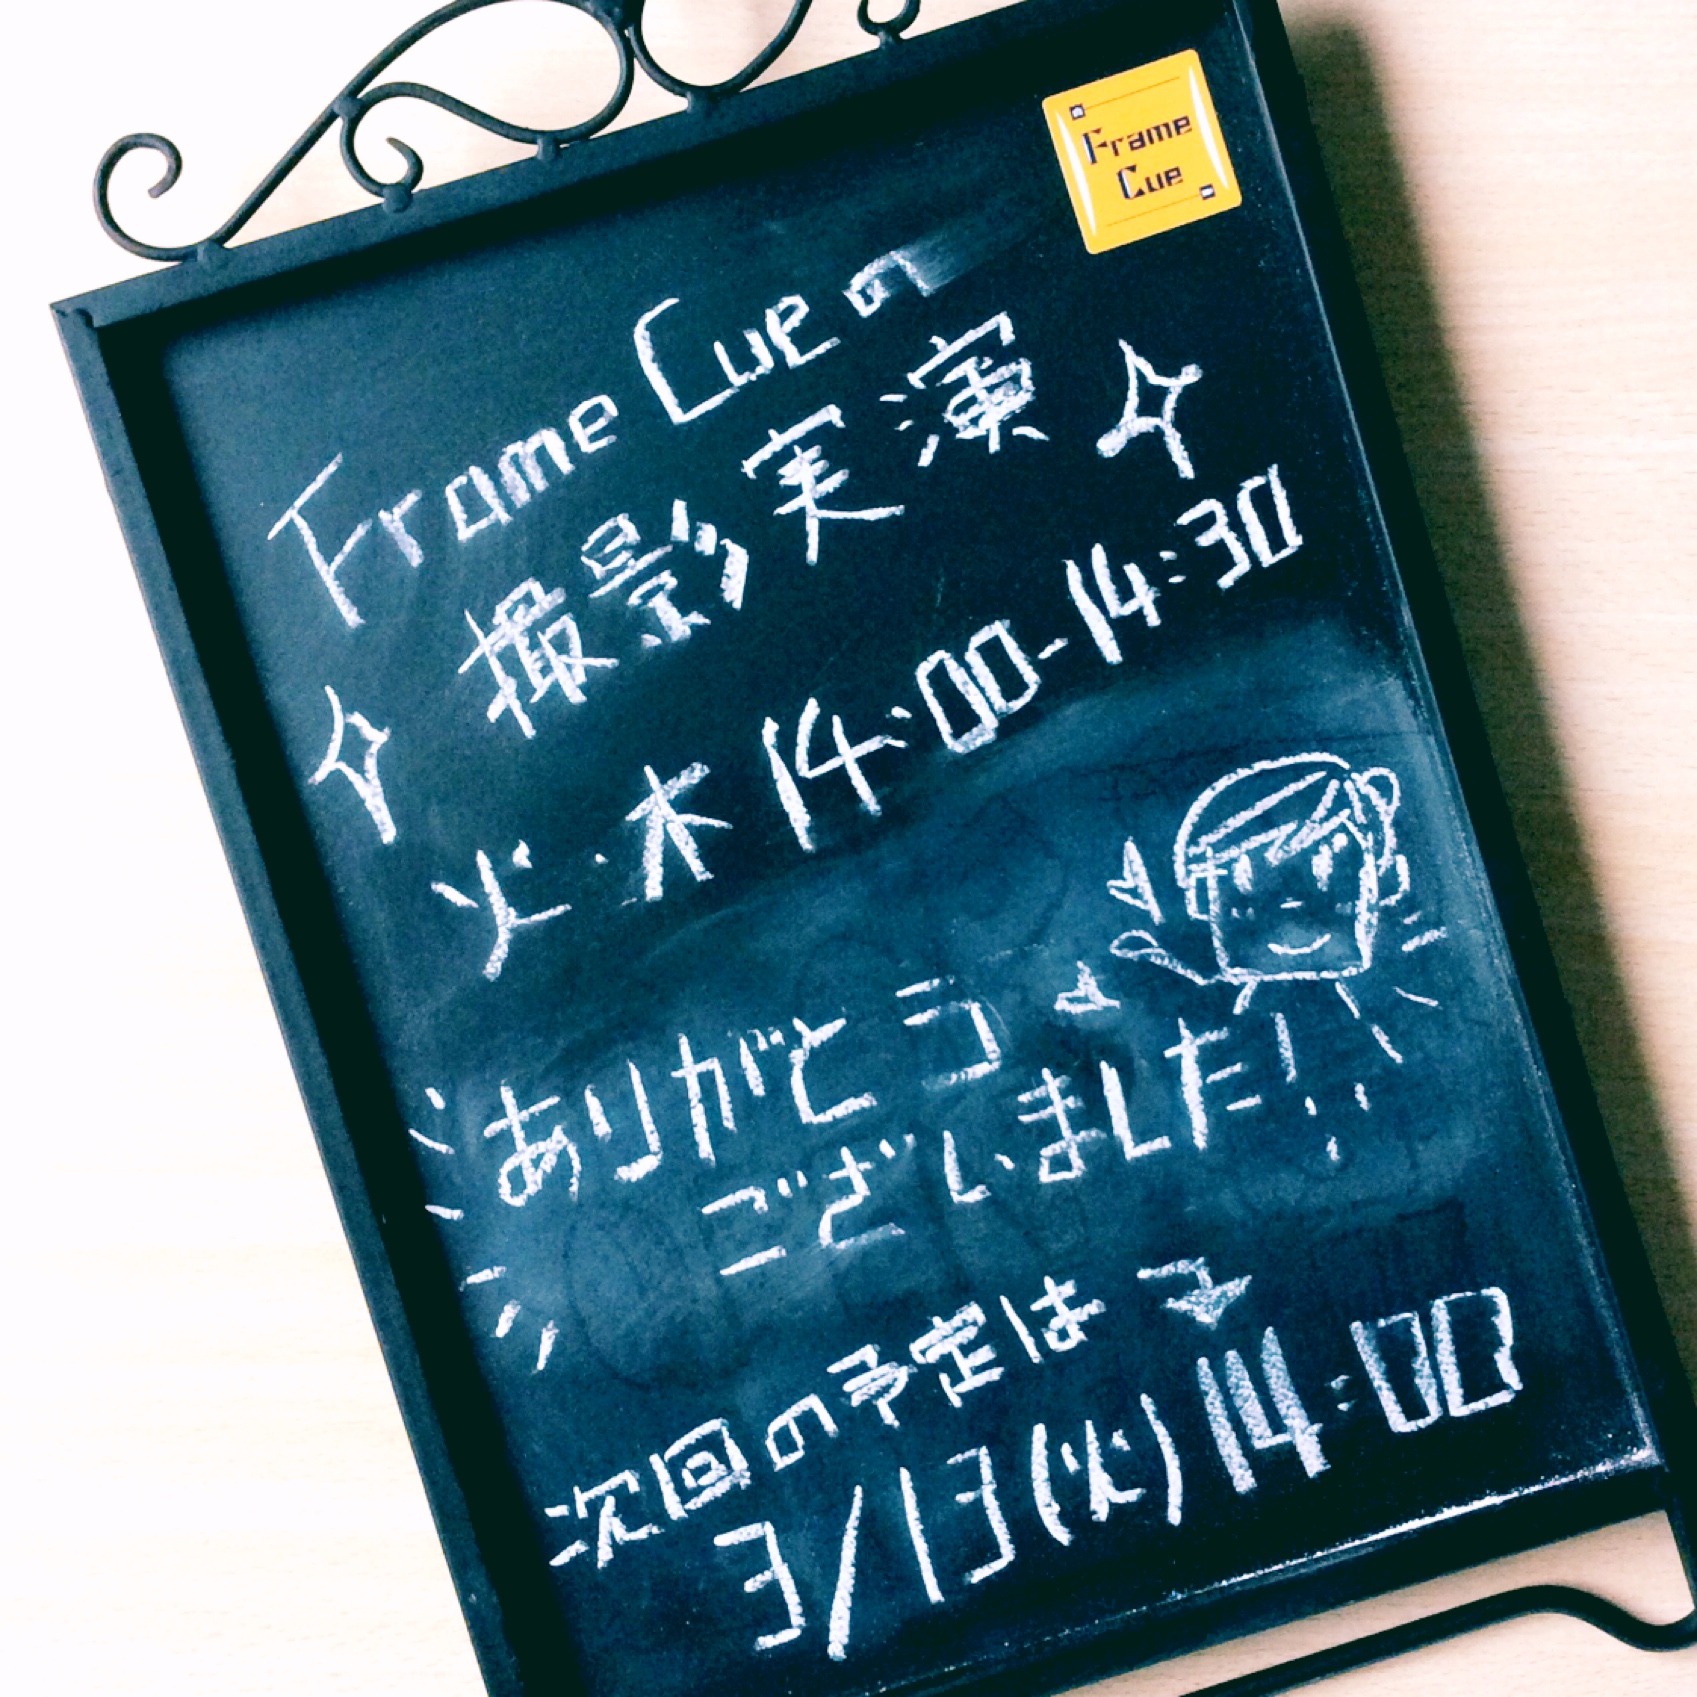 Frame
Cue
Frame Cueの
撮影実演
火・木 14:00-14:30
ありがとう
ございました!
次回の予定は
3/13(火)14:00